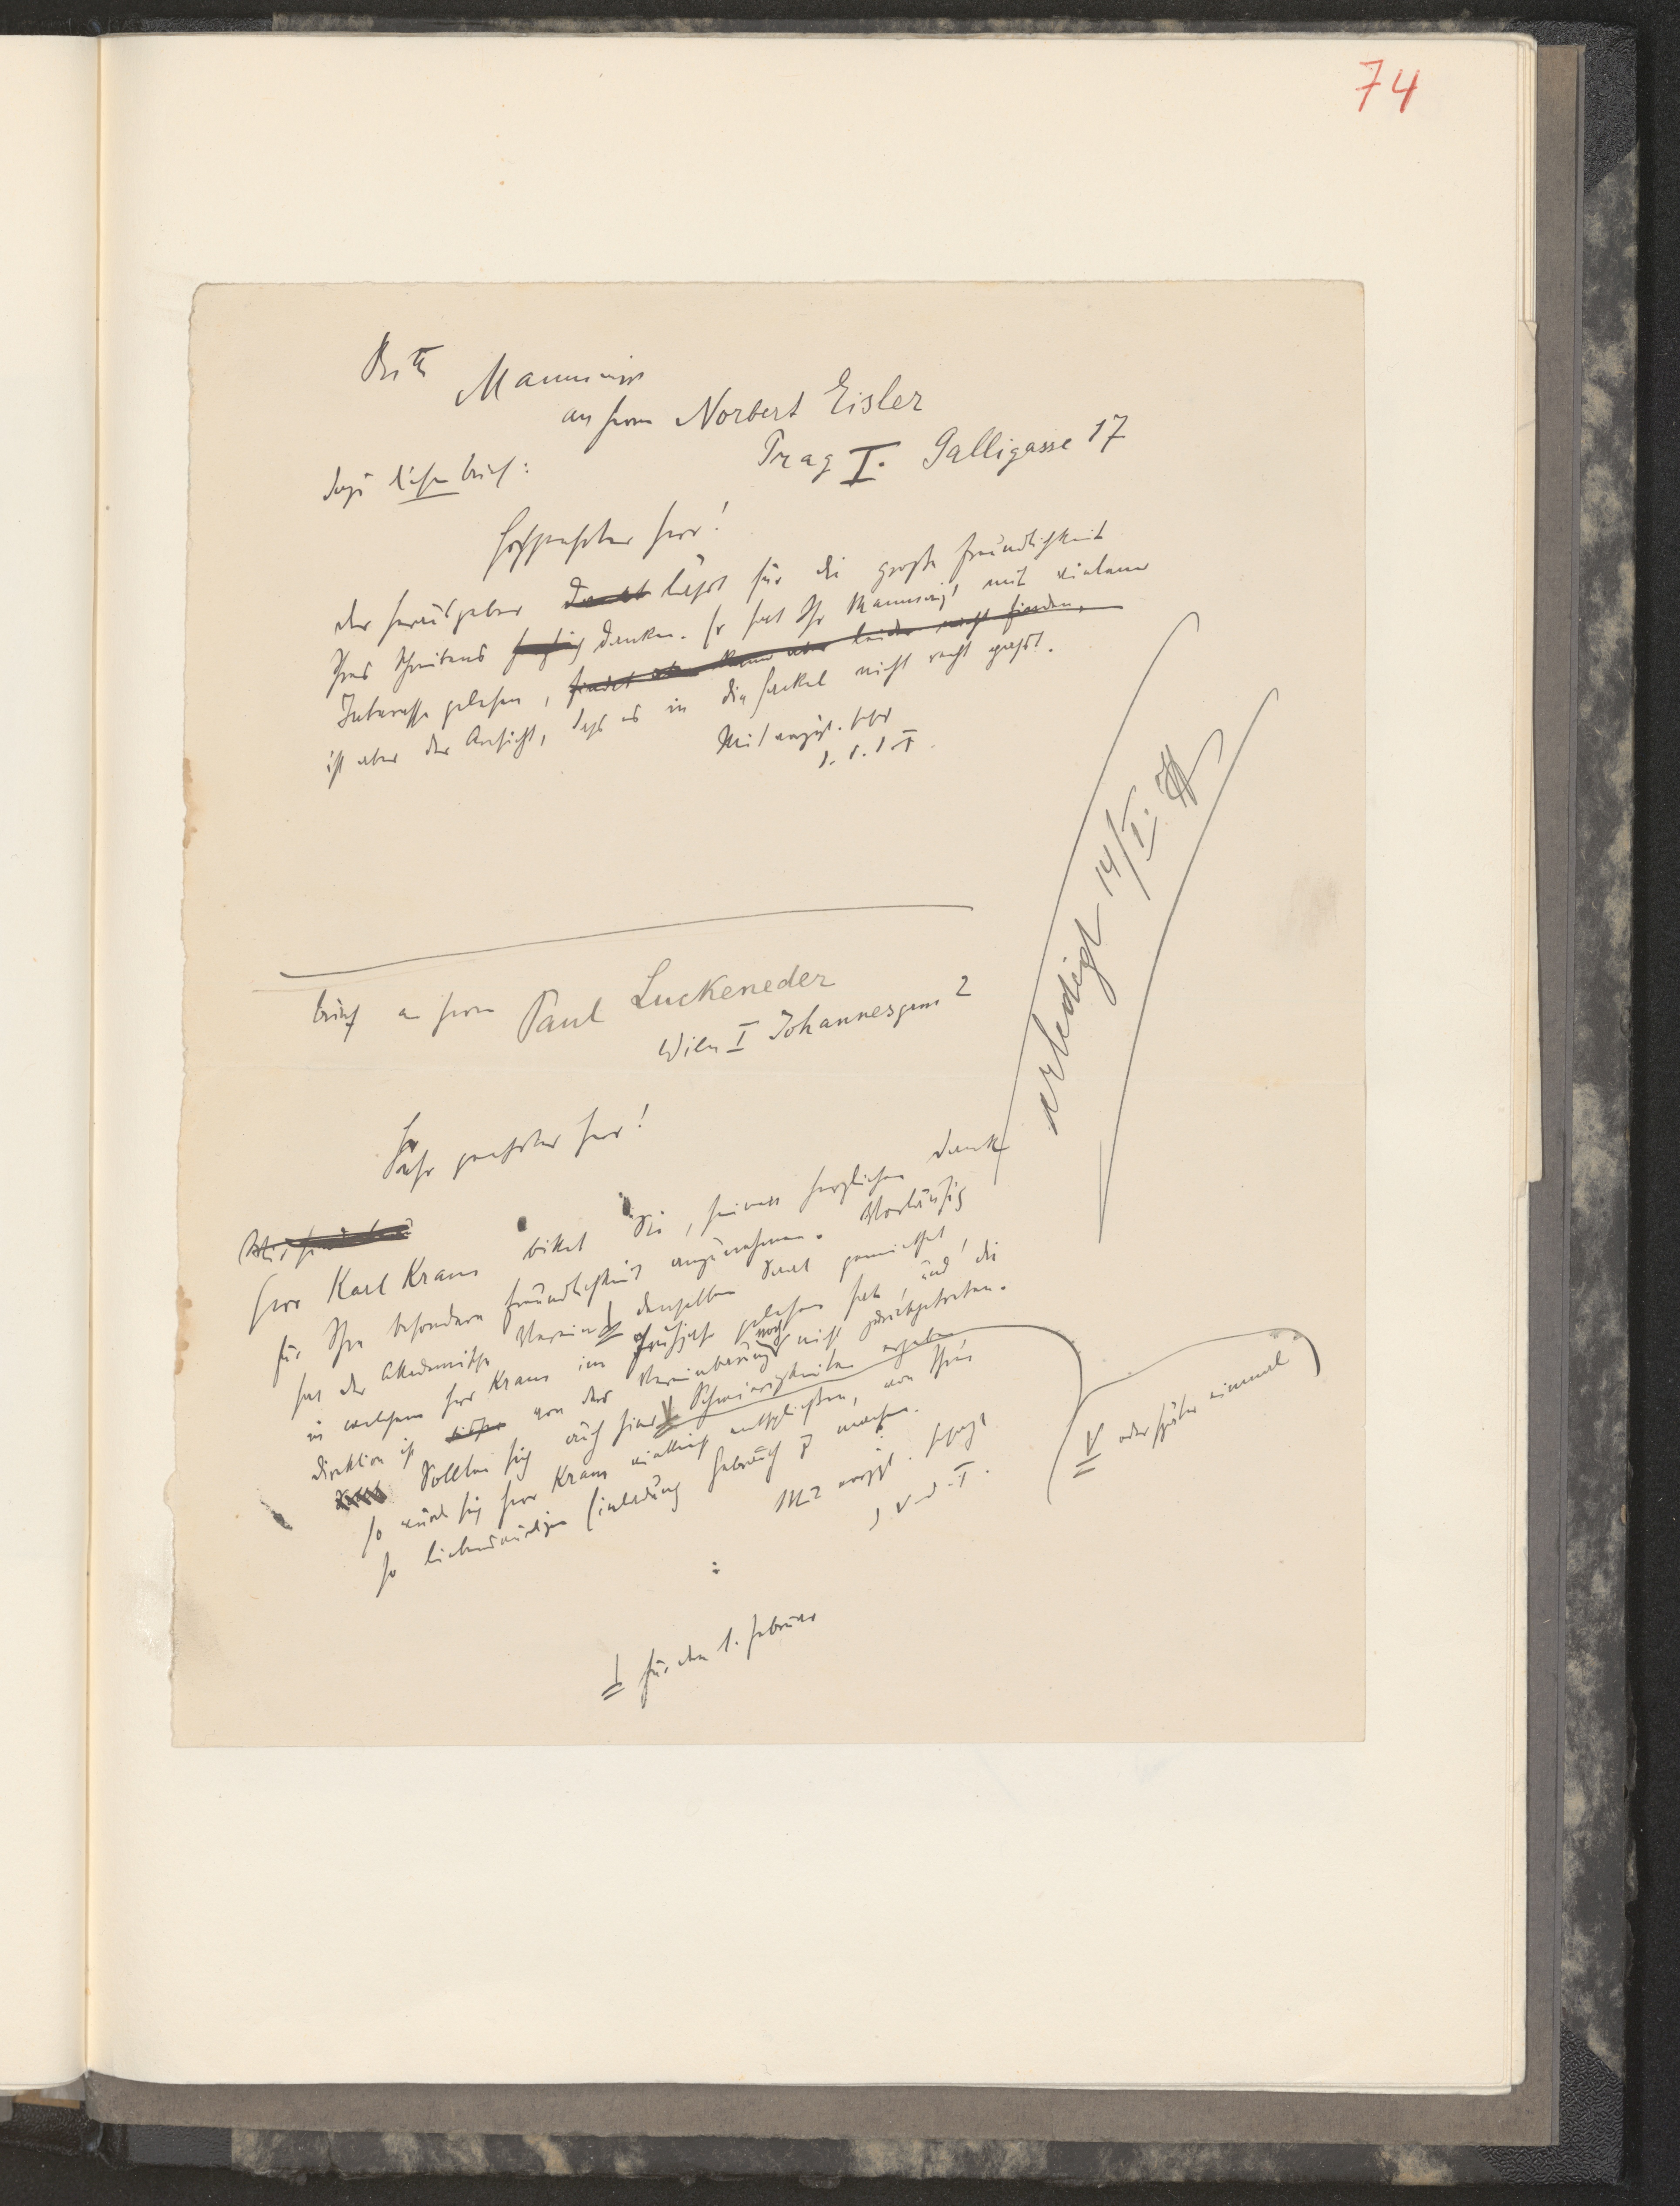 74
Bitte Manuscript
an Herrn Norbert Eisler
Prag I. Galligasse 17
dazu diesen Brief:
Hochgeehrter Herr!
Der Herausgeber dankt läßt für die große Freundlichkeit
Ihres Schreibens danken. Er hat Ihr Manuscript mit vielem
Interesse gelesen, findet aber kann aber leider nicht finden,
ist aber der Ansicht, daß es in die Fackel nicht recht paßt.
Mit
Brief an Herrn Paul Luckeneder
Wien I Johannesgasse 2
Sehr geehrter Herr!
Herr Karl Kraus bittet Sie, seinen herzlichen Dank
für Ihre besondere Freundlichkeit anzunehmen. Vorläufig
hat der Akademische Verein denselben Saal gemietet,
in welchem Herr Kraus im Frühjahr gelesen hat, und die
Direktion ist von der Vereinbarung noch nicht zurückgetreten.
Sollten sich auch hier V Schwierigkeiten ergeben,
so würde sich Herr Kraus vielleicht entschließen, von Ihrer
so liebenswürdigen Einladung Gebrauch zu machen.
V oder später einmal
für den 1. Februar
erledigt 14/I.